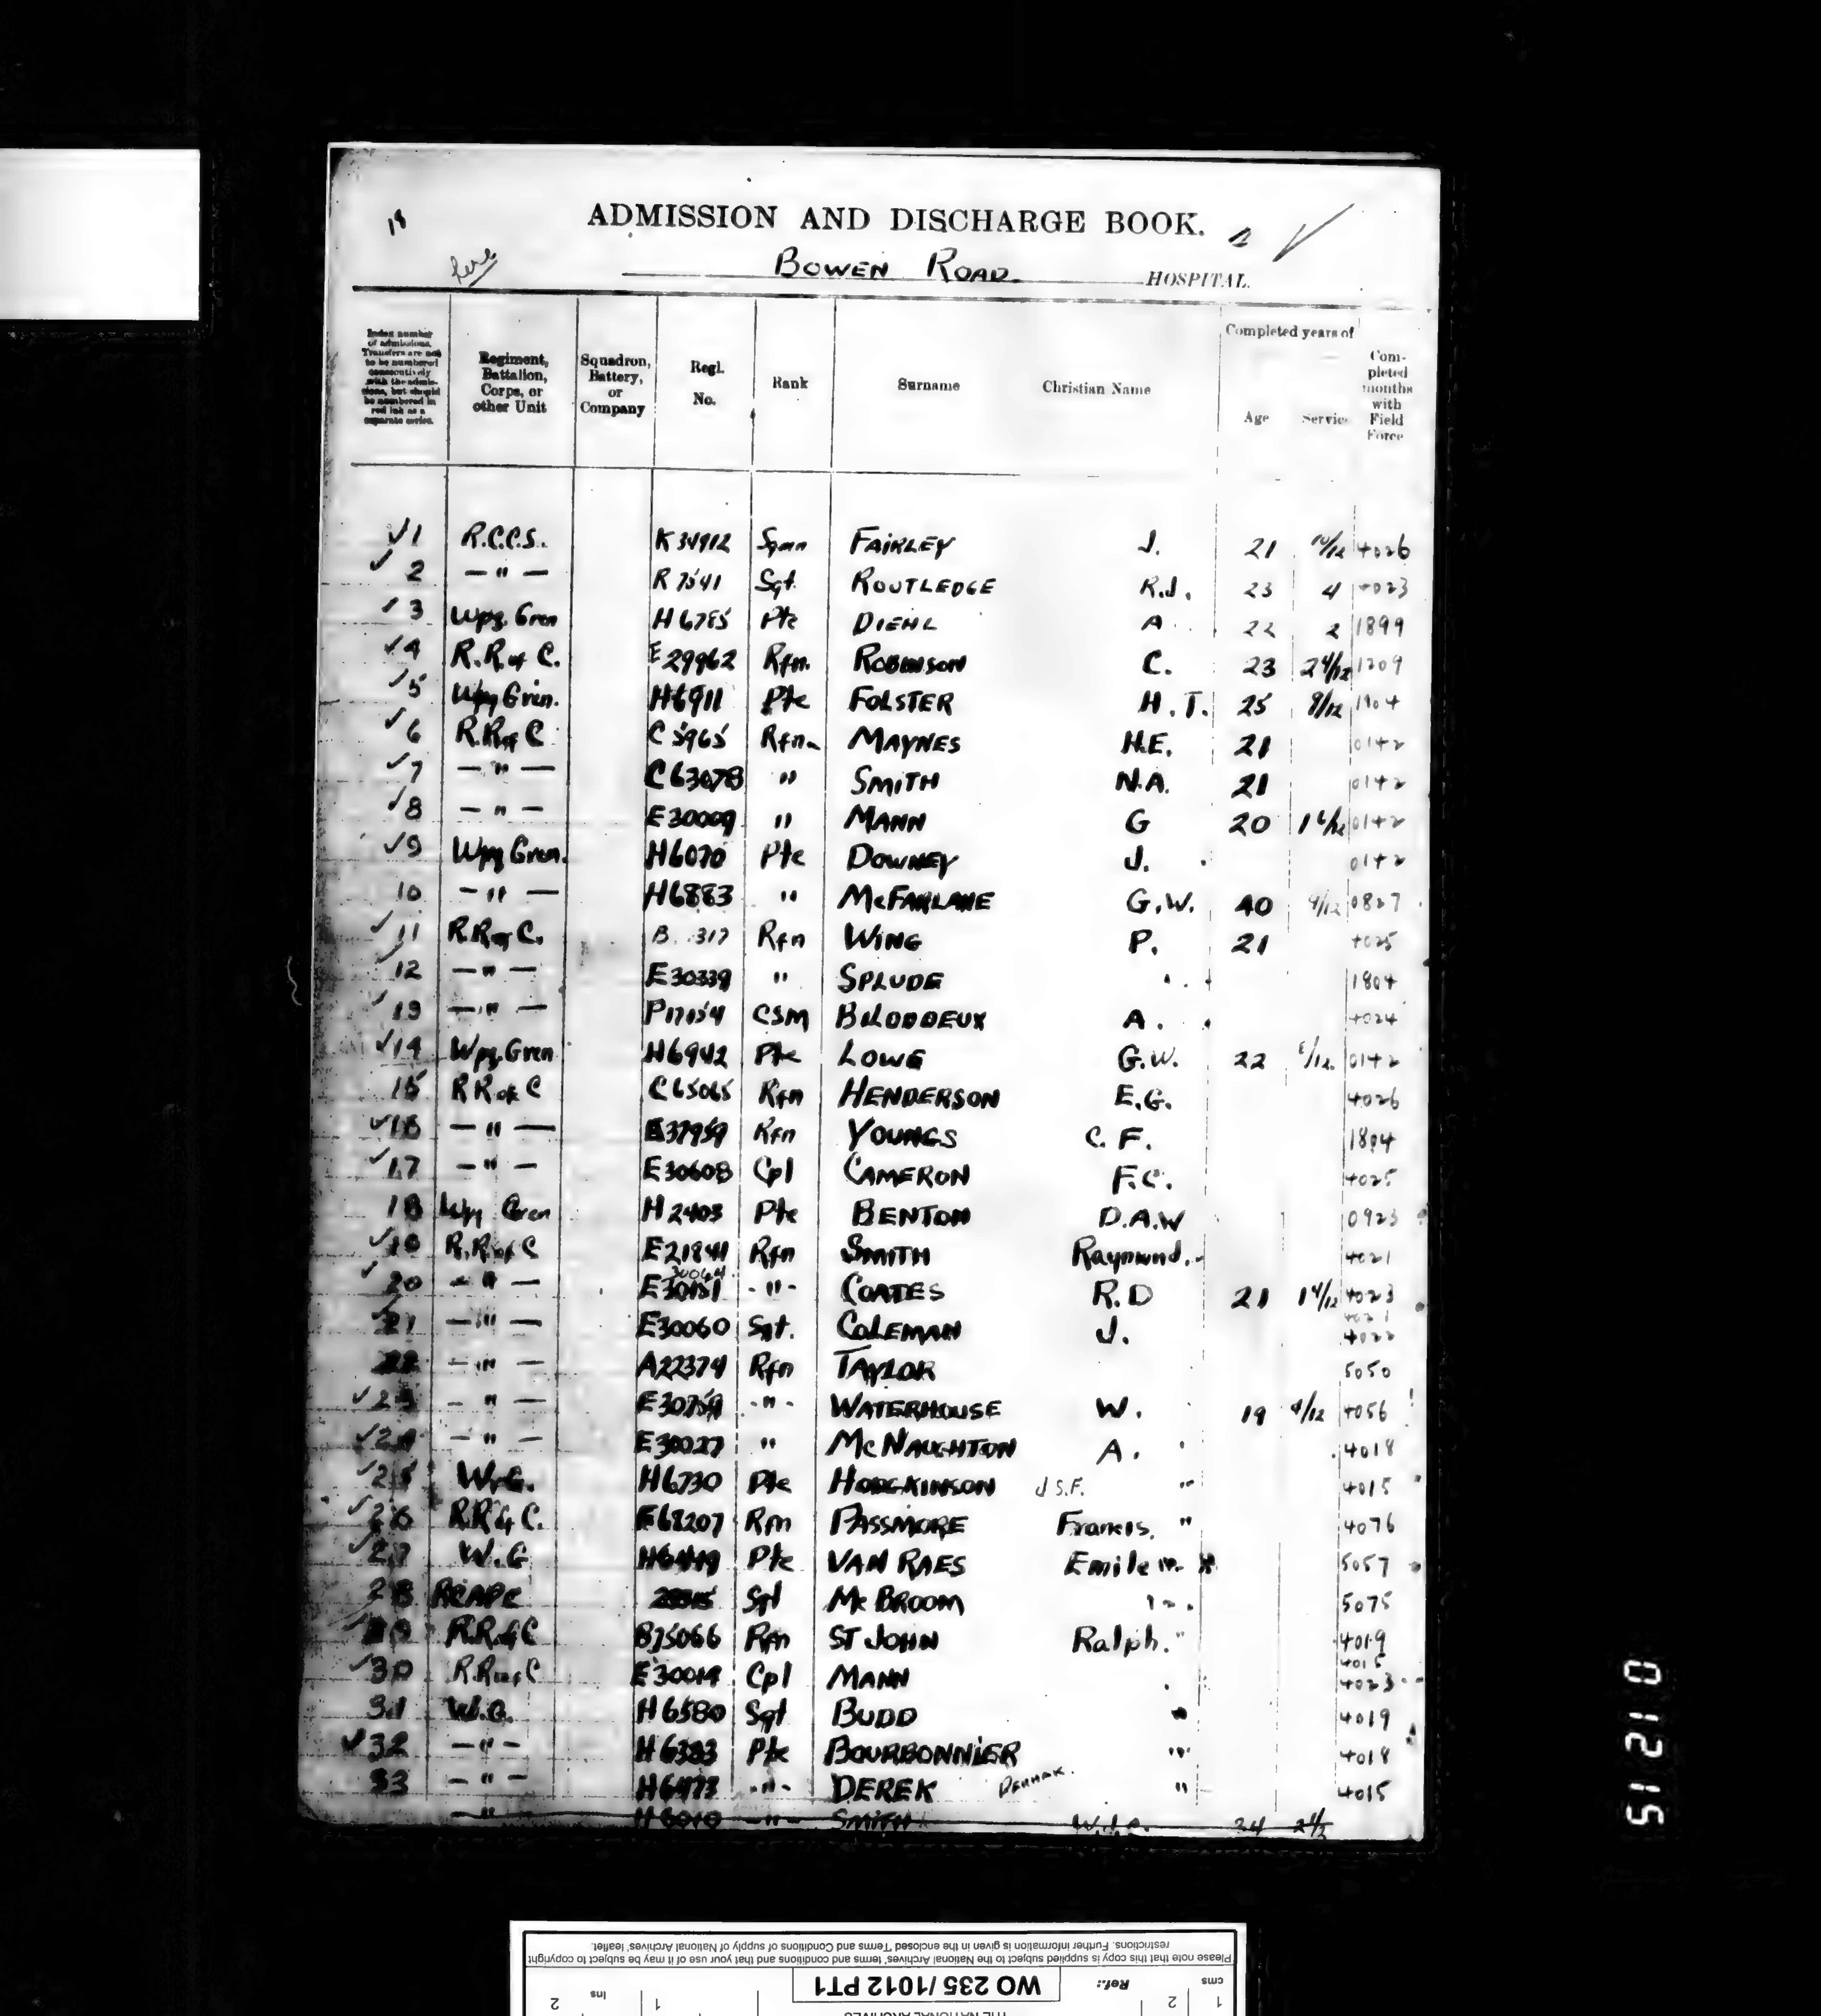 18
ADMISSION AND DISCHARGE BOOK.
BOWEN ROAD HOSPITAL.
Index number of admissions. Transfers are not to be numbered consecutively with the admissions, but should be numbered in red ink as a separate series.
Regiment, Battalion, Corps, or other Unit
Squadron, Battery, or Company
Regl. No.
Rank
Surname
Christian Name
Completed years of
Age
Service
Completed months with Field Force
1 R.C.C.S. K34912 FAIRLEY J. 21 10/12 4026
2 — " — R7541 Sgt. ROUTLEDGE R.J. 23 4 4023
3 Wpg. Gren H6785 Pte DIEHL A 22 2 1899
4 R.R of C. E29962 Rfn. ROBINSON C. 23 2 4/12 1209
5 Wpg Gren. H6911 Pte FOLSTER H.T. 25 9/12 1904
6 R.R of C C5965 Rfn. MAYNES H.E. 21 0142
7 — " — C63078 " SMITH N.A. 21 0142
8 — " — E30009 " MANN G 20 0142
9 Wpg Gren. H6070 Pte DOWNEY J. 0142
10 — " — H6883 " McFARLANE G.W. 40 9/12 0827
11 R.R of C. 317 Rfn WING P. 21 4025
12 — " — E30339 " SPLUDE 1804
13 — " — CSM BILODDEUX A. 4024
14 Wpg. Gren H6942 Pte LOWE G.W. 22 0142
15 R R of C C65065 Rfn HENDERSON E.G. 4026
16 — " — Rfn YOUNGS C.F. 1804
17 — " — E30608 Cpl CAMERON F.C. 4025
18 Wpg Gren H2403 Pte BENTON D.A.W 0923
19 R.R of C E21841 Rfn SMITH Raymond. 4021
20 — " — 30064 - " - COATES R.D 21 1 4/12 4023
21 — " — E30060 Sgt. COLEMAN J. 4022
22 — " — A22374 Rfn TAYLOR 5050
23 — " — E30759 - " - WATERHOUSE W. 19 4/12 4056
24 — " — E30027 " McNAUGHTON A. 4018
25 W.G. H6730 Pte HODGKINSON J S.F. " 4015
26 R.R of C. E68207 Rm PASSMORE Francis. " 4076
27 W.G Pte VAN RAES Emile 5057
28 RCAPC Sgt McBROOM 5075
29 R.R of C B75066 Rm ST JOHN Ralph. " 4019
30 R.R of C E30014 Cpl MANN 4015 4023
31 W.G. H6580 Sgt BUDD " 4019
32 — " — H6383 Pte BOURBONNIER " 4018
33 — " — - " - DEREK " 4015
— " — H6010 — " — SMITH 34
Please note that this copy is supplied subject to the National Archives' terms and conditions and that your use of it may be subject to copyright
restrictions. Further information is given in the enclosed 'Terms and Conditions of supply of National Archives' leaflet.
Ref.: WO 235/1012 PT1
cms 1 2
Ins 1 2
THE NATIONAL ARCHIVES